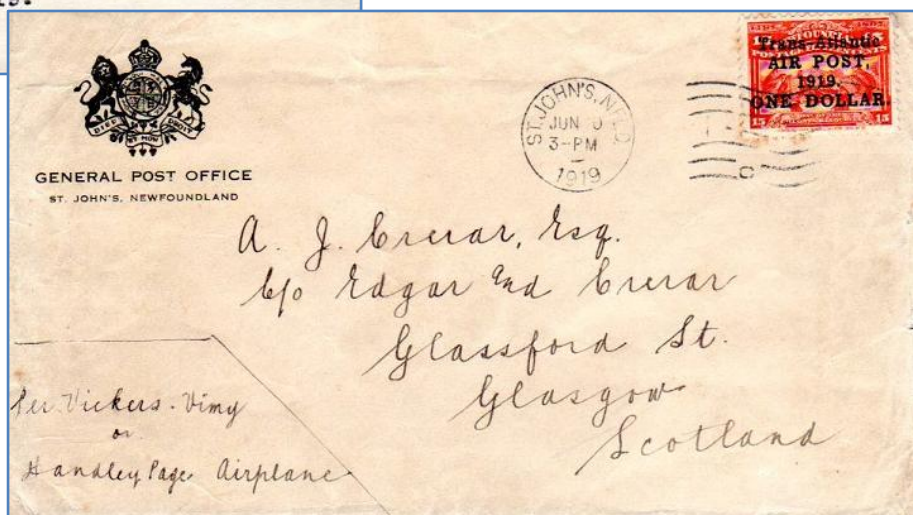 DIEU ET MON DROIT
GENERAL POST OFFICE
ST. JOHN'S, NEWFOUNDLAND
ST. JOHN'S, N'F'L'D.
JUN 0
3-PM
1919
Trans-Atlantic
AIR POST,
1919.
ONE DOLLAR.
15 15
A. J. Crerar, Esq.
c/o Edgar and Crerar
Glassford St.
Glasgow
Scotland
Per Vickers-Vimy
or
Handley Page Airplane